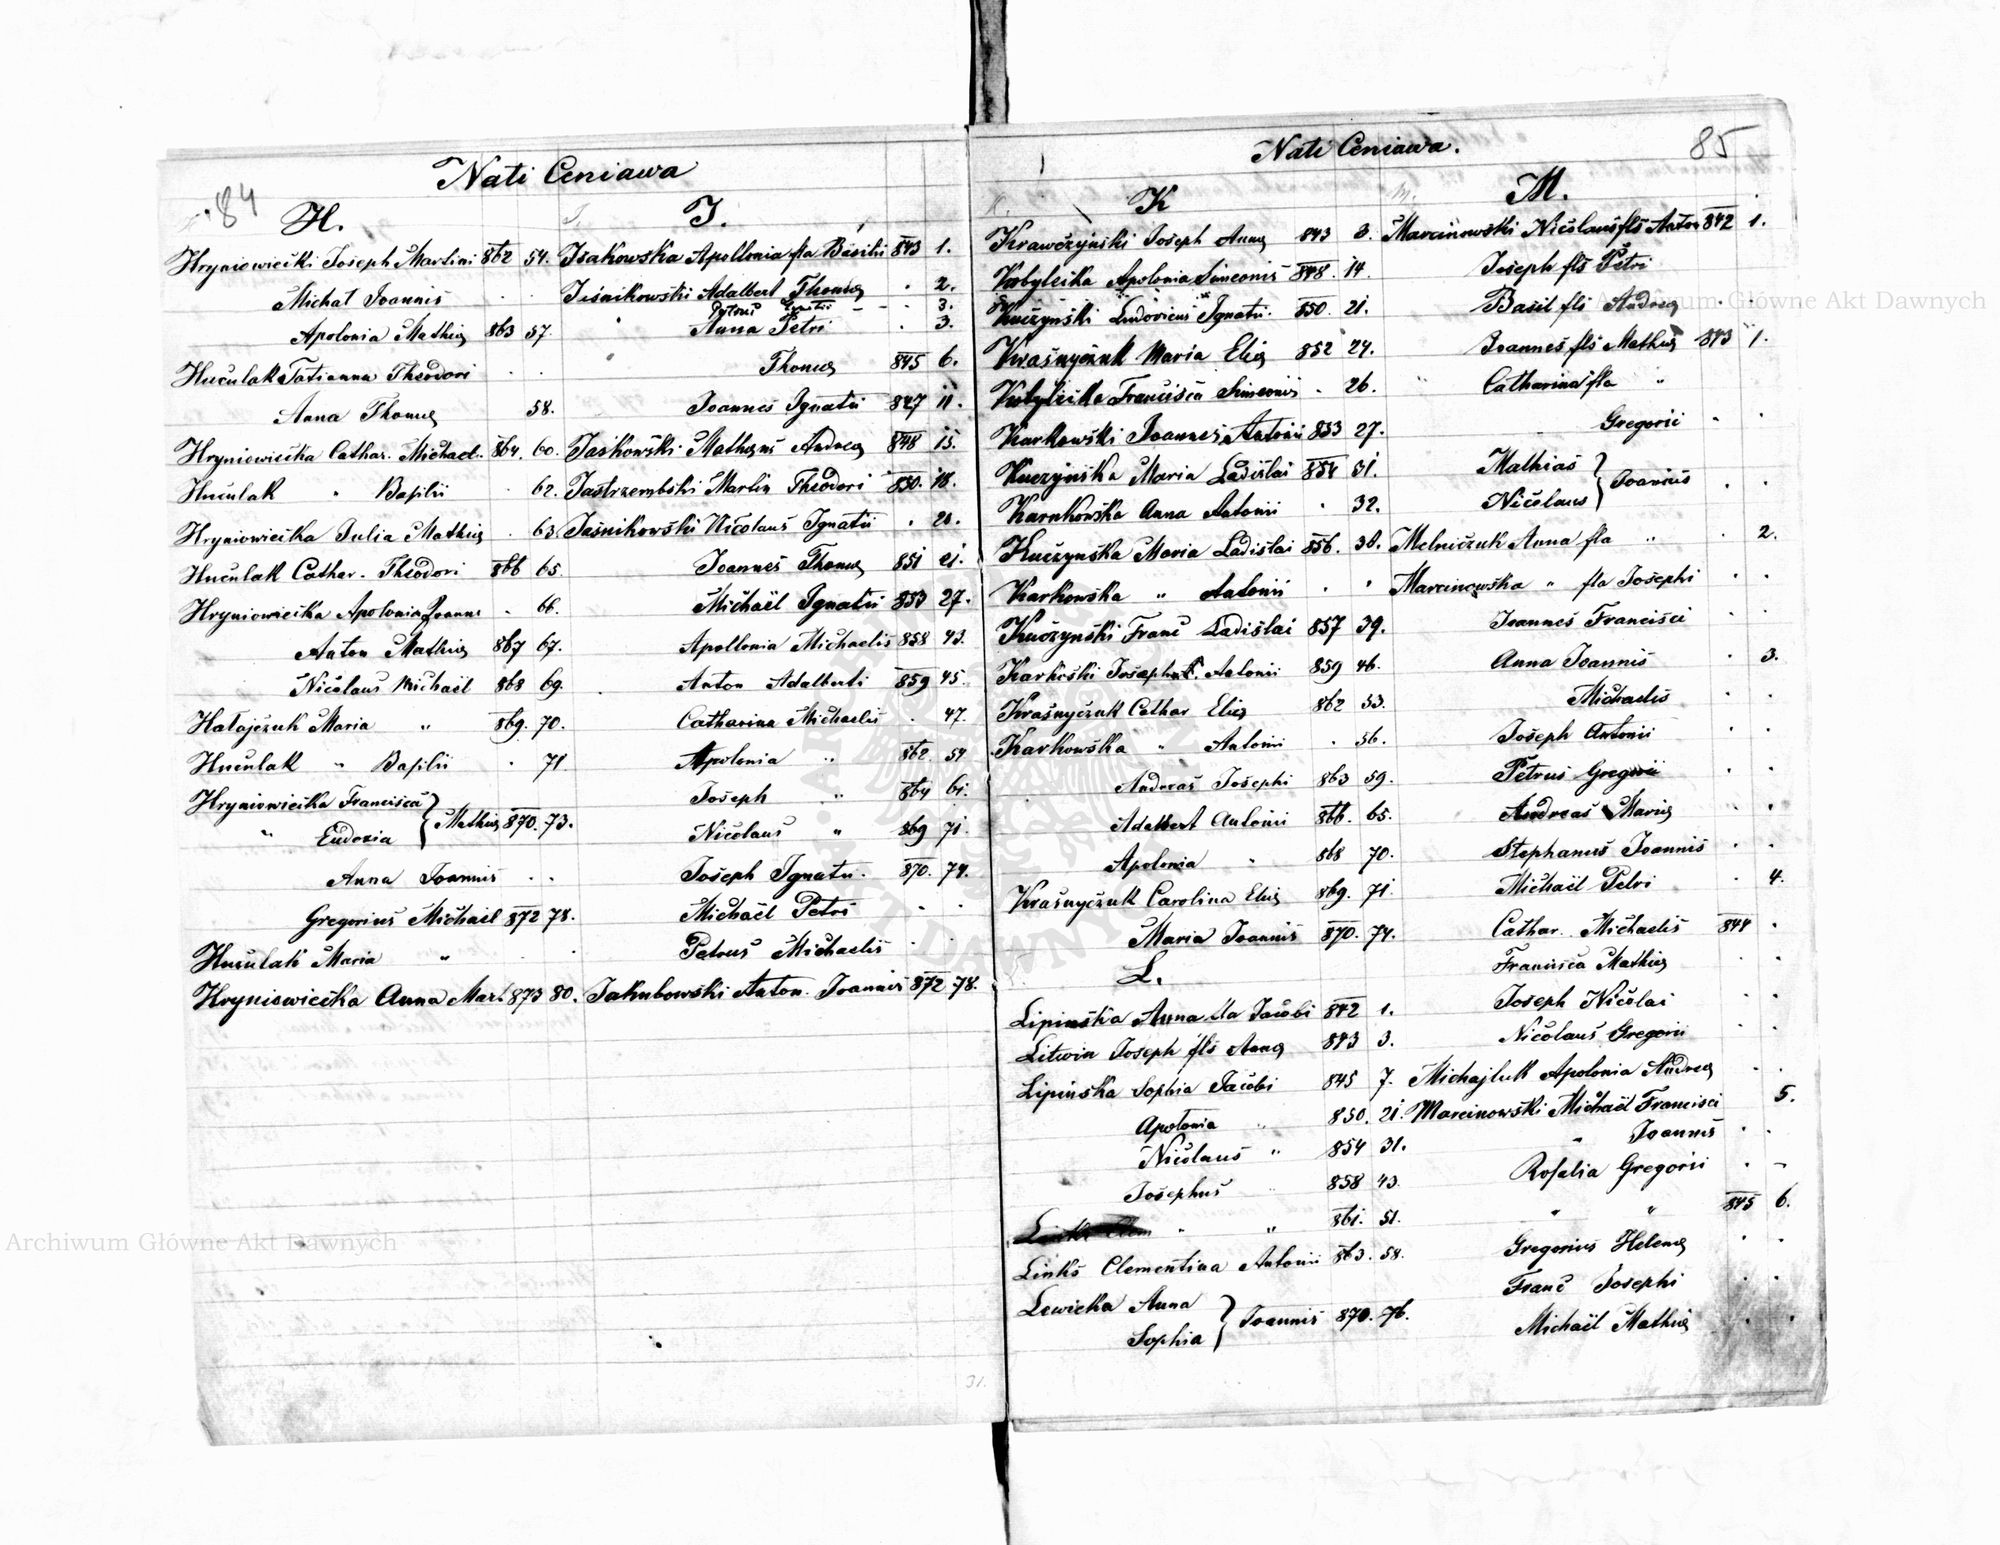 84
Nati Ceniawa
H.
Hryniewiecki Joseph Martini 862 54.
Michat Joannis . .
Apolonia Mathiæ 863 57.
Huculak Tatianna Theodori . .
Anna Thomæ 58.
Hryniowiecka Cathar. Michael. 864. 60.
Huculak " Basilii . 62.
Hryniowiecka Julia Mathiæ . 63.
Huculak Cathar. Theodori 866 65.
Hryniowiecka Apolonia Joanns . 66.
Anton Mathiæ 867 67.
Nicolaus Michael 868 69.
Hatajczuk Maria " 869. 70.
Huculak " Basilii . 71.
Hryniowiecka Francisca } Mathiæ 870. 73.
" Eudoxia
Anna Joannis . .
Gregorius Michael 872 78.
Huculak Maria " . .
Hryniewiecka Anna Mart. 873 80.
J.
Isakowska Apollonia fla Basilii 843 1.
Jeśnikowski Adalbert Thomæ . 2.
Ignatii - - 3.
" Anna Petri . 3.
Thomæ 845 6.
Joannes Ignatii 847 11.
Jaskowski Matheus Andreæ 848 15.
Jastrzembski Martin Theodori 850. 18.
Jaśnikowski Nicolaus Ignatii . 20.
Joannes Thomæ 851 21.
Michaël Ignatii 853 27.
Apollonia Michaelis 858 43.
Anton Adalberti 859 45.
Catharina Michaelis . 47.
Apolonia " 862. 54
Joseph " 864 61.
Nicolaus " 869 71.
Joseph Ignatii. 870. 74.
Michaël Petri . .
Petrus Michaelis . .
Jakubowski Anton. Joannis 872 78.
31.
85
Nati Ceniawa.
K
Krawczyński Joseph Annæ 843 3.
Kobylecka Apolonia Simeonis 848. 14.
Kuczyński Ludovicus Ignatii. 850. 21.
Kraśnyczuk Maria Eliæ 852 24.
Kobylecka Francisca Simeonis . 26.
Karkowski Joannes Antonii 853 27.
Kuczyńska Maria Ladislai 854 31.
Karnkowska Anna Antonii . 32.
Kuczyńska Maria Ladislai 856. 38.
Karkowska " Antonii . .
Kuczyński Franc Ladislai 857 39.
Karkoski Joseph Antonii 859 46.
Kraśnyczuk Cathar Eliæ 862 53.
Karkowska " Antonii . 56.
Andreas Josephi 863 59.
Adalbert Antonii 866. 65.
Apolonia " 868 70.
Kraśnyczuk Carolina Eliæ 869. 71.
Maria Joannis 870. 74.
L.
Lipinska Anna fla Jacobi 842 1.
Litwin Joseph fls Annæ 843 3.
Lipinska Sophia Jacobi 845 7.
Apolonia " 850. 21.
Nicolaus " 854 31.
Josephus " 858 43.
" " 861. 51.
Links Clementina Antonii 863. 58.
Lewicka Anna } Joannis 870. 76.
Sophia
M.
Marcinowski Nicolaus fls Anton 842 1.
Joseph fls Petri
Basil fls Andreæ . .
Joannes fls Mathiæ 843 1.
" Catharina fla "
Gregorii . .
Mathias } Joannis . .
Nicolaus
Melniczuk Anna fla " . 2.
Marcinowska " fla Josephi . .
Joannes Francisci . .
Anna Joannis . 3.
Michaelis . .
Joseph Antonii . .
Petrus Gregorii . .
Andreas Mariæ . .
Stephanus Joannis . .
Michaël Petri . 4.
Cathar. Michaelis 844 .
Francisca Mathiæ . .
Joseph Nicolai . .
Nicolaus Gregorii . .
Michajluk Apolonia Andreæ . .
Marcinowski Michaël Francisci 5.
" Joannis . .
Rosalia Gregorii . .
" " 845 6.
Gregorius Helenæ . .
Franc Josephi . .
Michaël Mathiæ . .
Archiwum Główne Akt Dawnych
Archiwum Główne Akt Dawnych